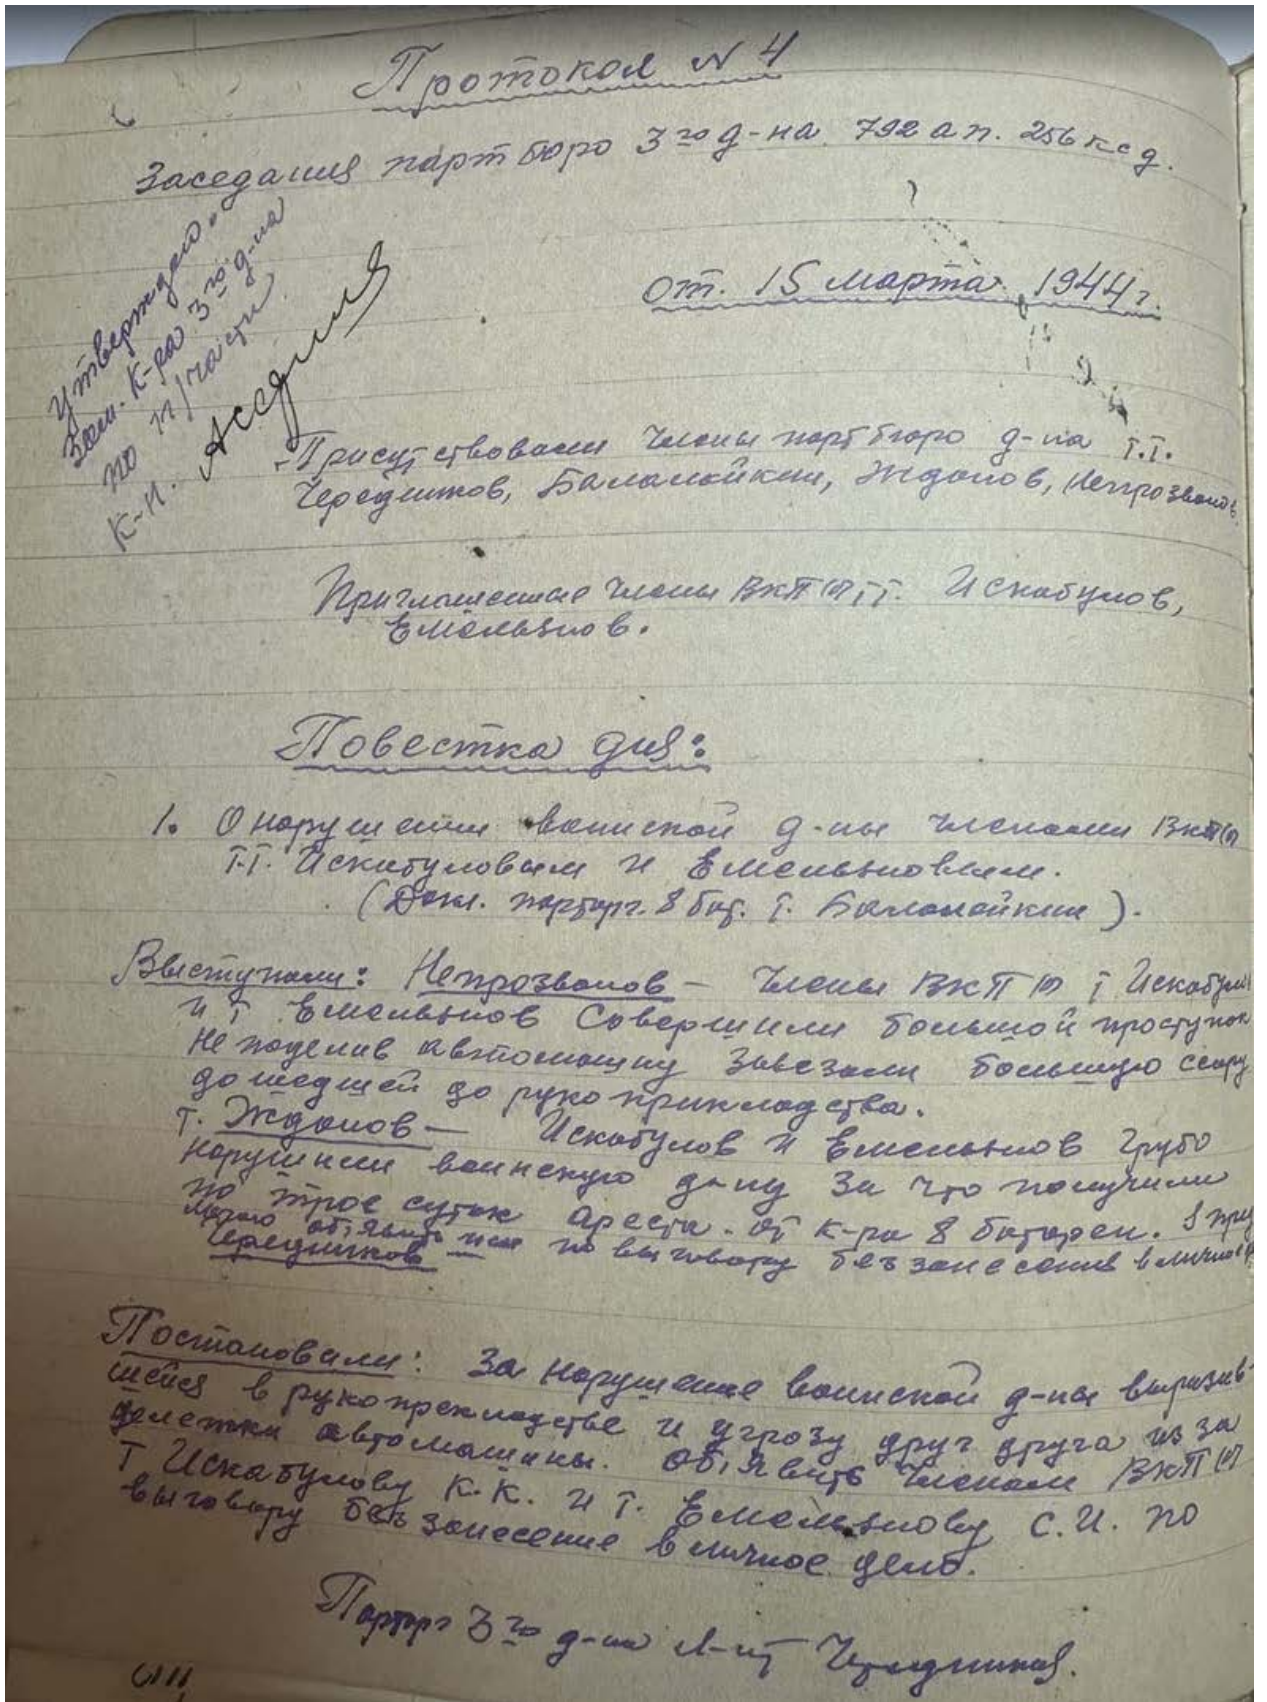 Протокол N 4
Заседания парт бюро 3го д-на 792 ап. 256 ксд.
Утверждаю"
Зам. К-ра 3го д-на
по п/части
К-н.
от. 15 марта 1944г.
Присутствовали члены партбюро д-на т.т.
Чередников, Балалайкин, Жданов, Непрозванов.
Приглашенные члены ВКП(б) т.т. Искабулов,
Емельянов.
Повестка дня:
1. О нарушении воинской д-ны членами ВКП(б)
т.т. Искабуловым и Емельяновым.
(Докл. парторг. 8 бат. т. Балалайкин).
Выступили: Непрозванов – Члены ВКП(б) т Искабулов
и т Емельянов Совершили большой проступок
Не поделив автомашину завезали большую ссору
дошедшей до рукоприкладства.
т. Жданов – Искабулов и Емельянов грубо
нарушили воинскую д-ну за что получили
по трое суток ареста. от к-ра 8 батареи. Я пред
лагаю обьявить им по выговору без занесения в личное д
Чередников –
Постановили: За нарушение воинской д-ны выразив-
шейся в рукопрекладстве и угрозу друг друга из за
дележки автомашины. Обьявить членам ВКП(б)
т Искабулову К.К. и т. Емельянову С.И. по
выговору без занесение в личное дело.
Парторг 3го д-на л-нт Чередников.